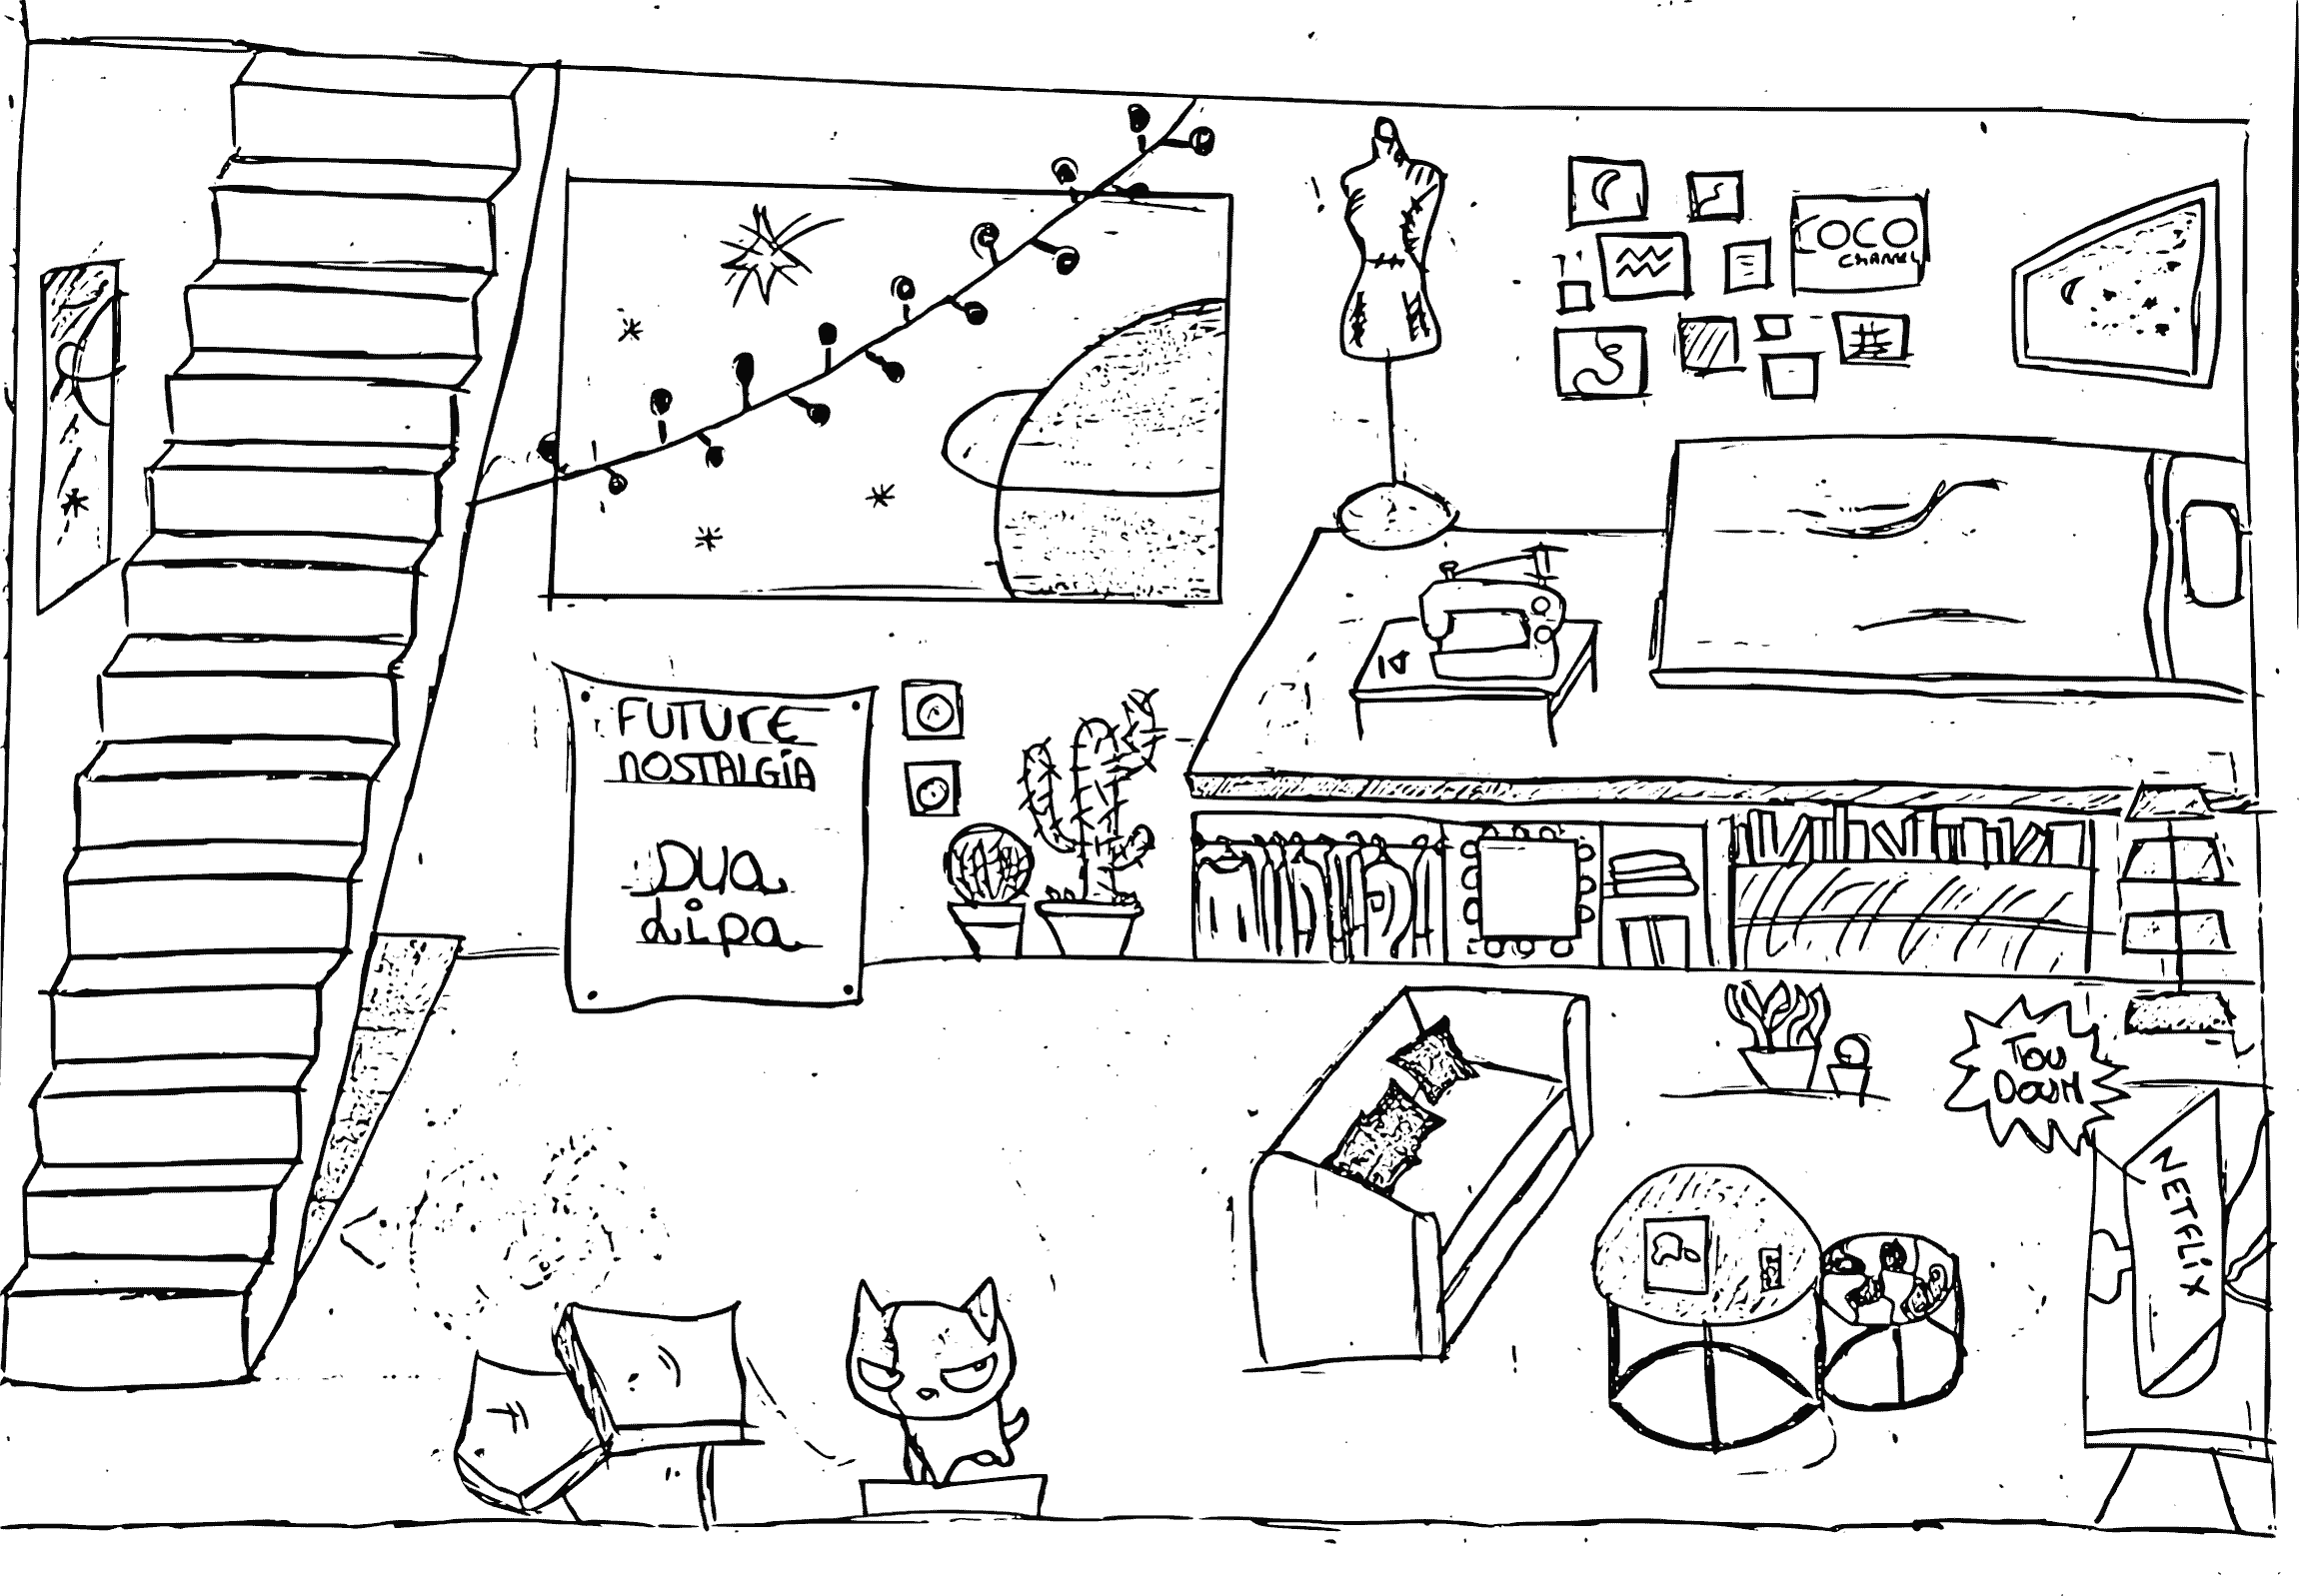 COCO
CHANNEL
FUTURE
NOSTALGIA
Dua
Lipa
TOU
DOUM
NETFLIX